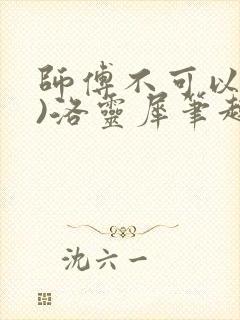 師傅不可以
)洛靈犀筆趣
沈六一